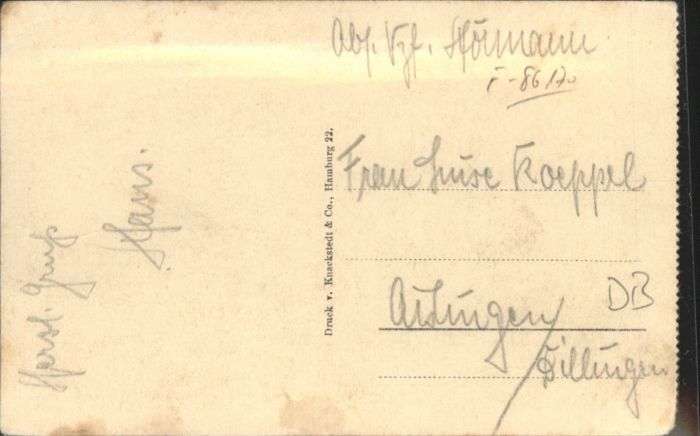 Herzl. Gruß
Hans.
Druck v. Knackstedt & Co., Hamburg 22.
Abs. Vzf. Hörmann
Frau Luise Koeppel
Aislingen/
Dillingen
DB